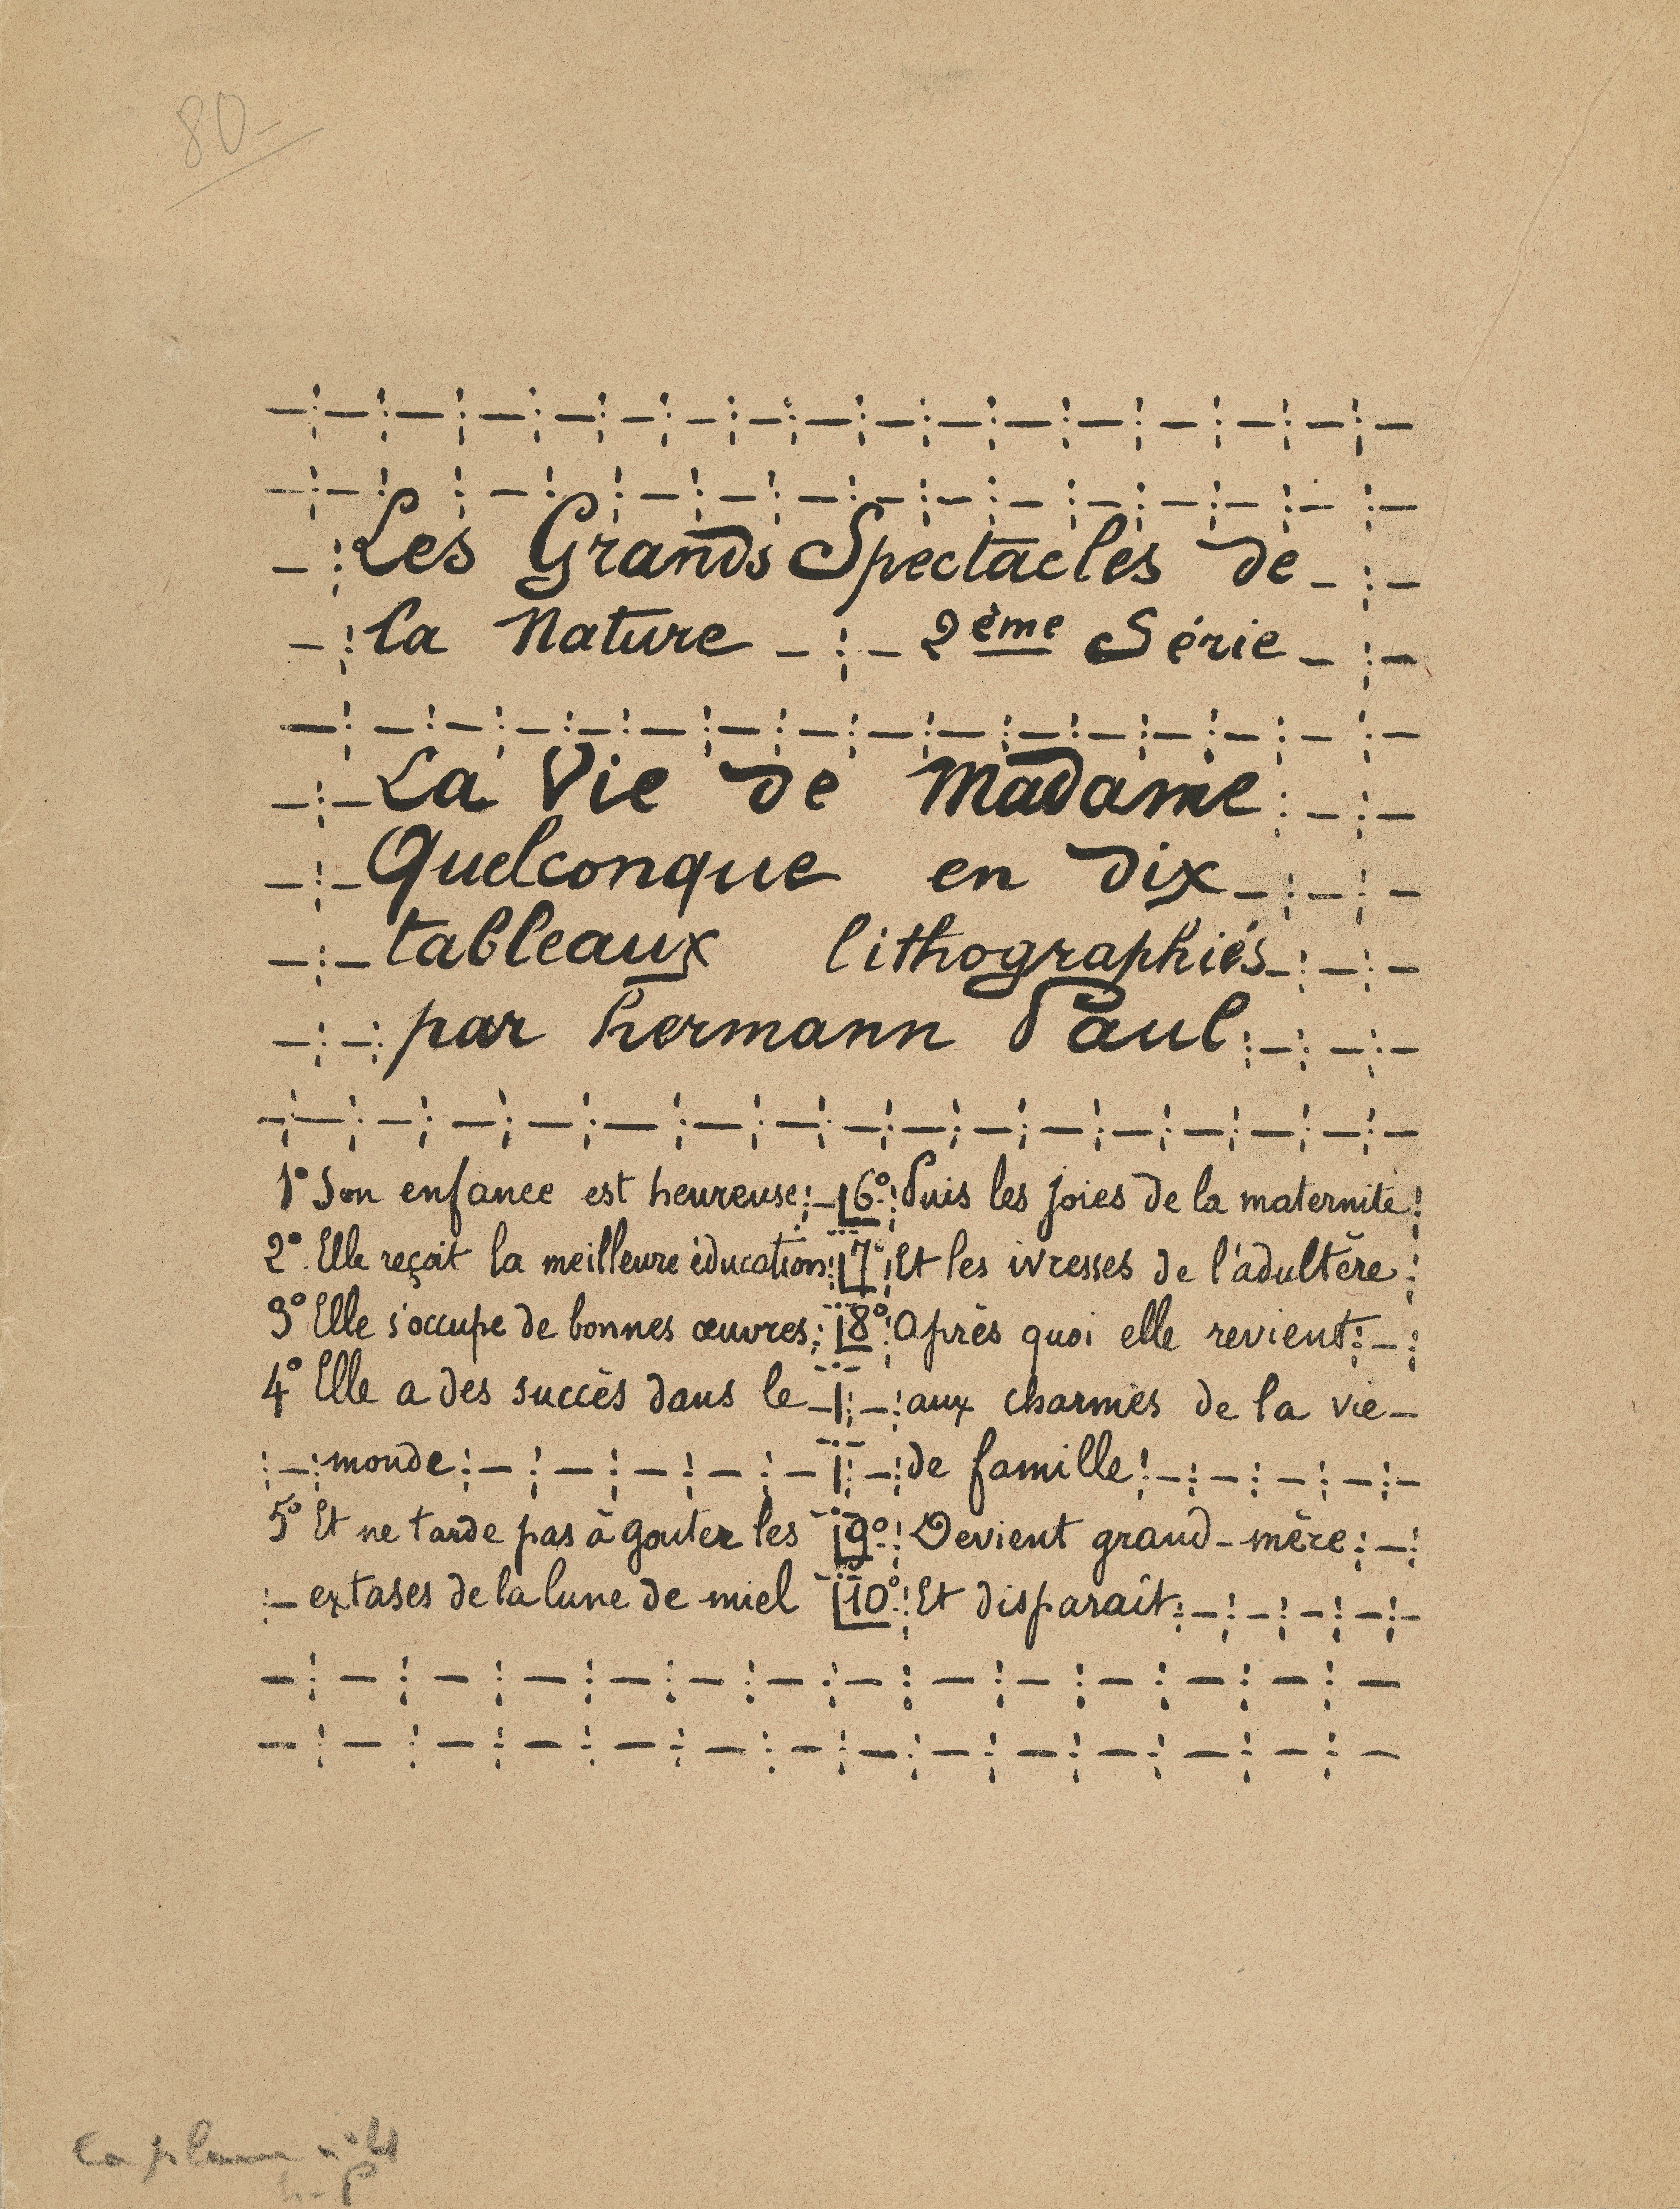 80-
Les Grands Spectacles de
la Nature 2ème Série
La Vie de Madame
Quelconque en dix
tableaux lithographiés
par hermann Paul
1° Son enfance est heureuse
2° Elle reçoit la meilleure éducation
3° Elle s'occupe de bonnes œuvres
4° Elle a des succès dans le
monde
5° Et ne tarde pas à gouter les
extases de la lune de miel
6° Puis les joies de la maternité
7° Et les ivresses de l'adultère
8° Après quoi elle revient
aux charmes de la vie
de famille
9° Devient grand-mère
10° Et disparaît
la